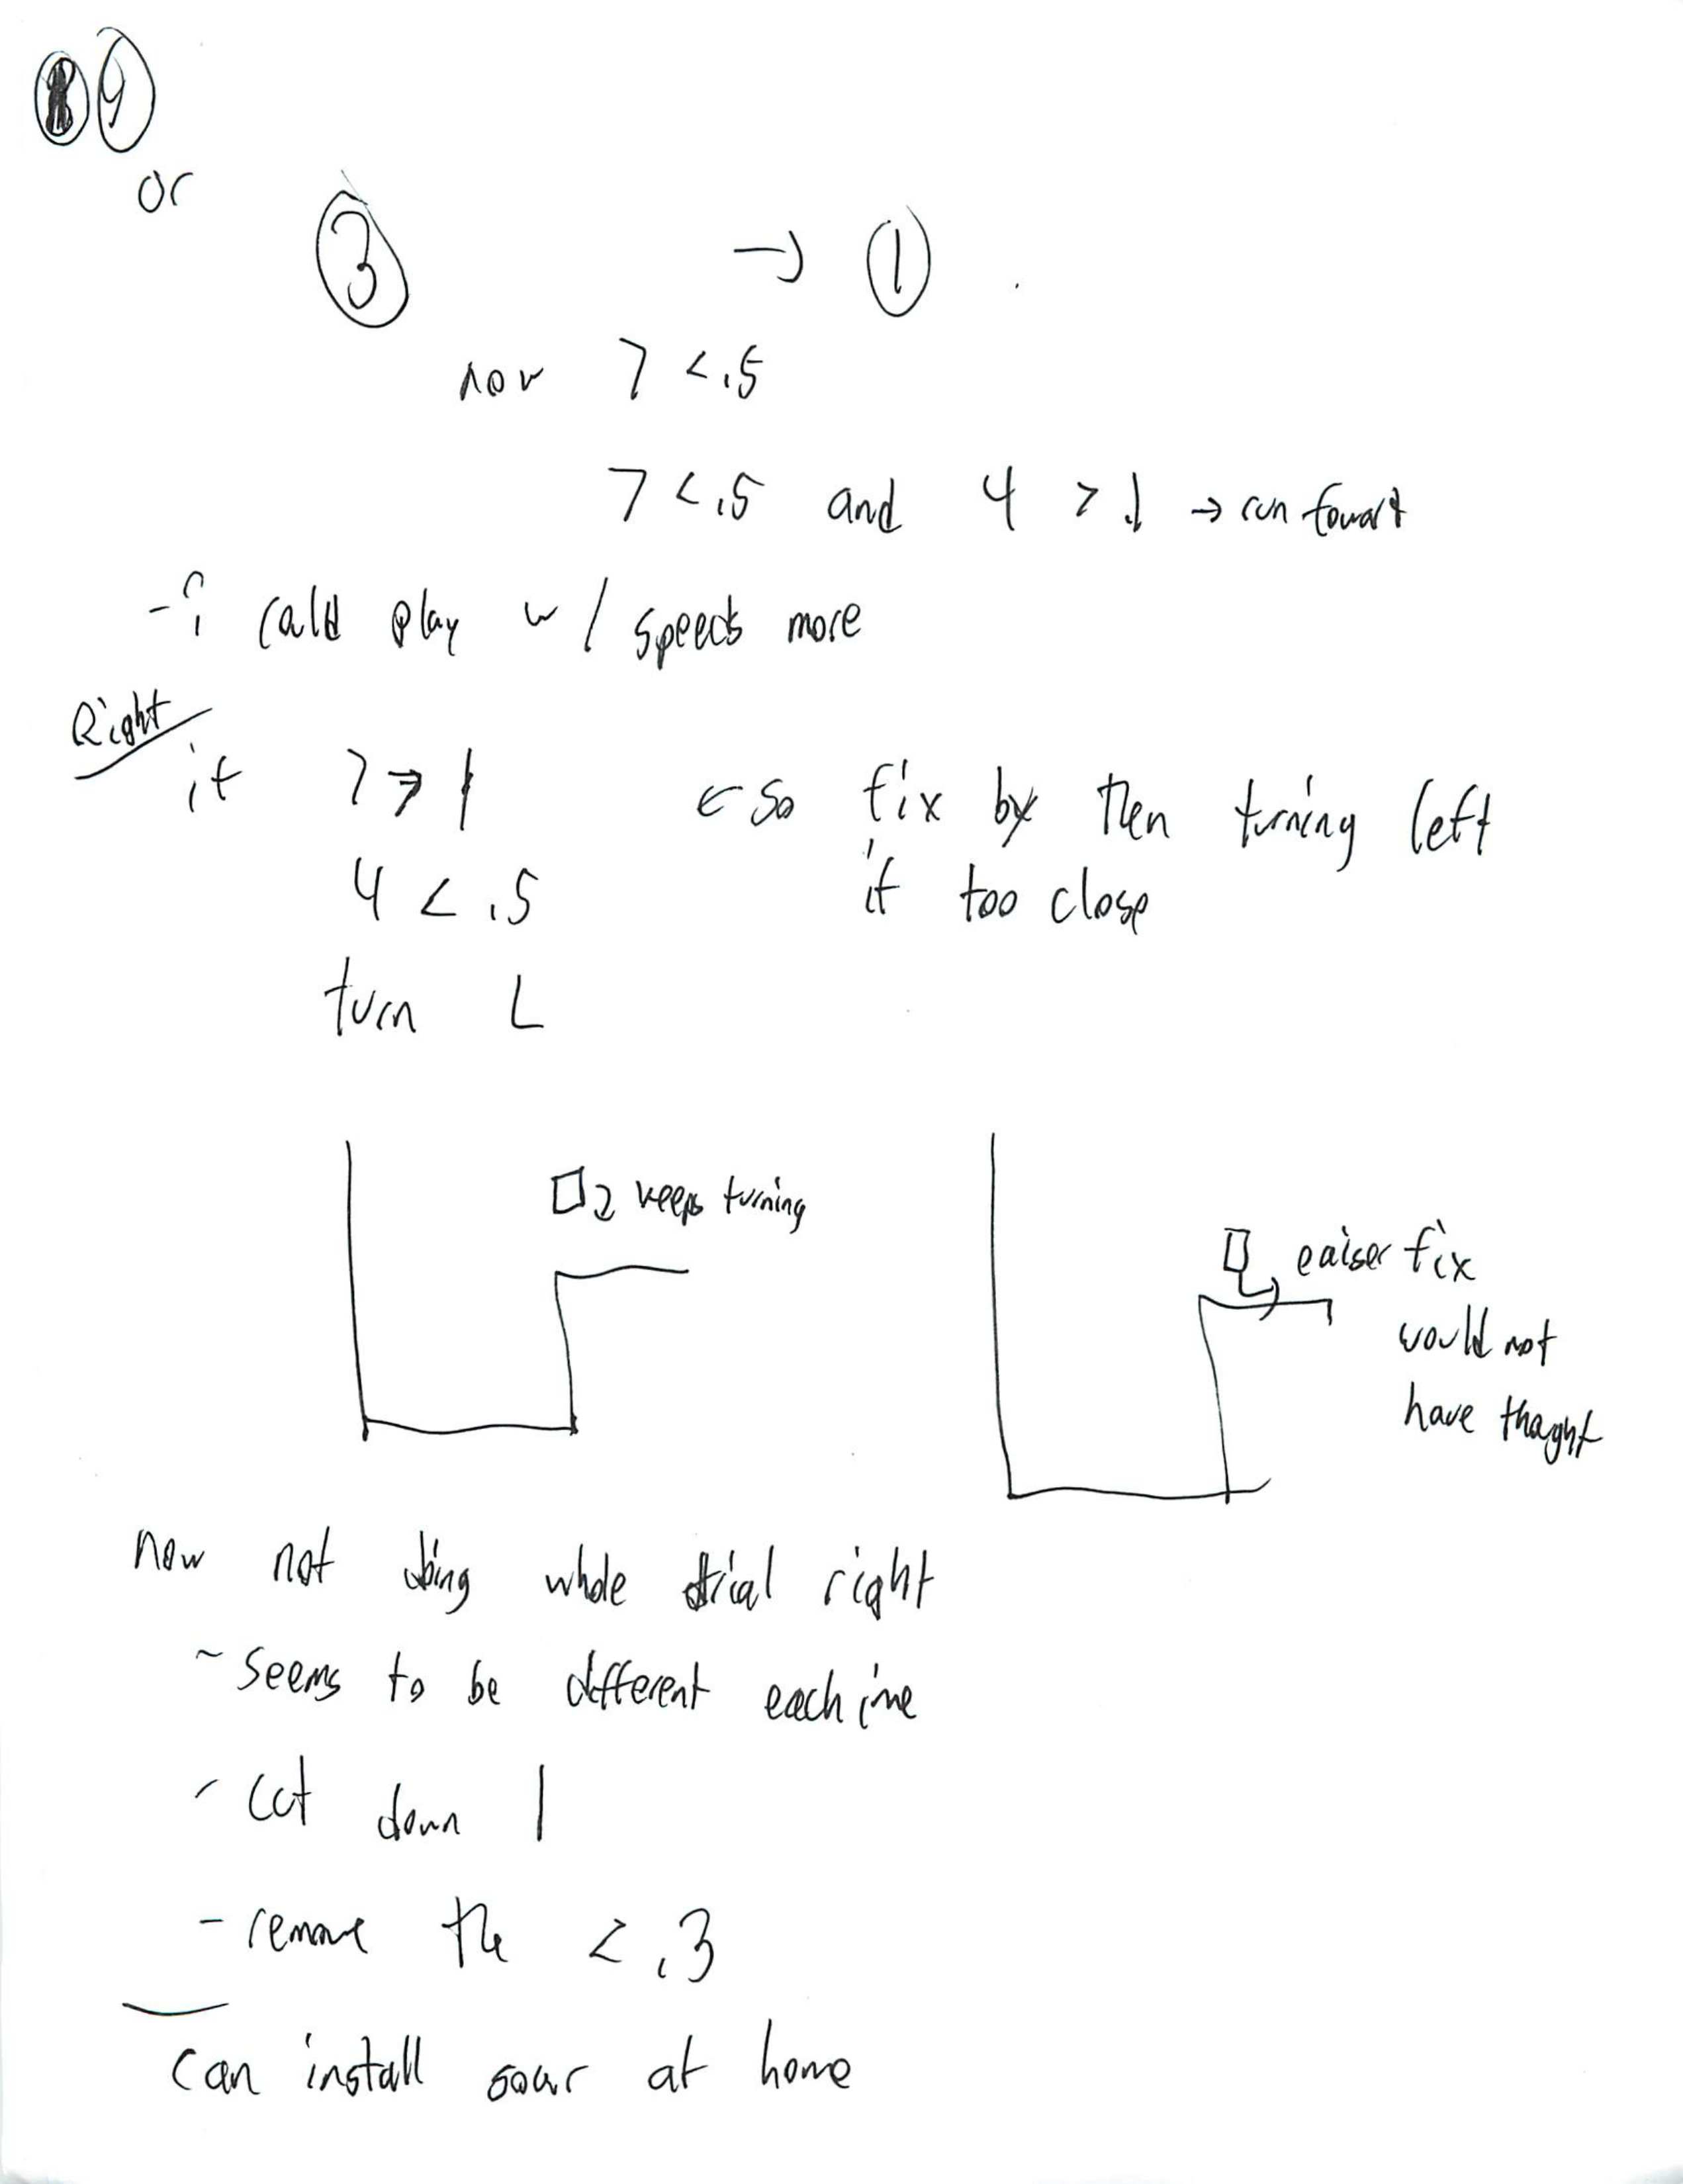 9
or
3 → 1
now 7 < .5
7 < .5 and 4 > .1 → run foward
- i could play w/ speeds more
Right
if 7 > 1 ← so fix by then turning left
4 < .5 if too close
turn L
keeps turning
eaiser fix
would not
have thought
now not doing whole trial right
~ seems to be different each ime
- cut down 1
- remove the < .3
can install at home